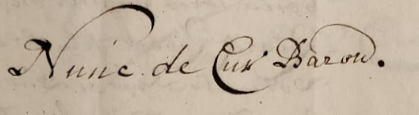 Nunc de Cur Baron.